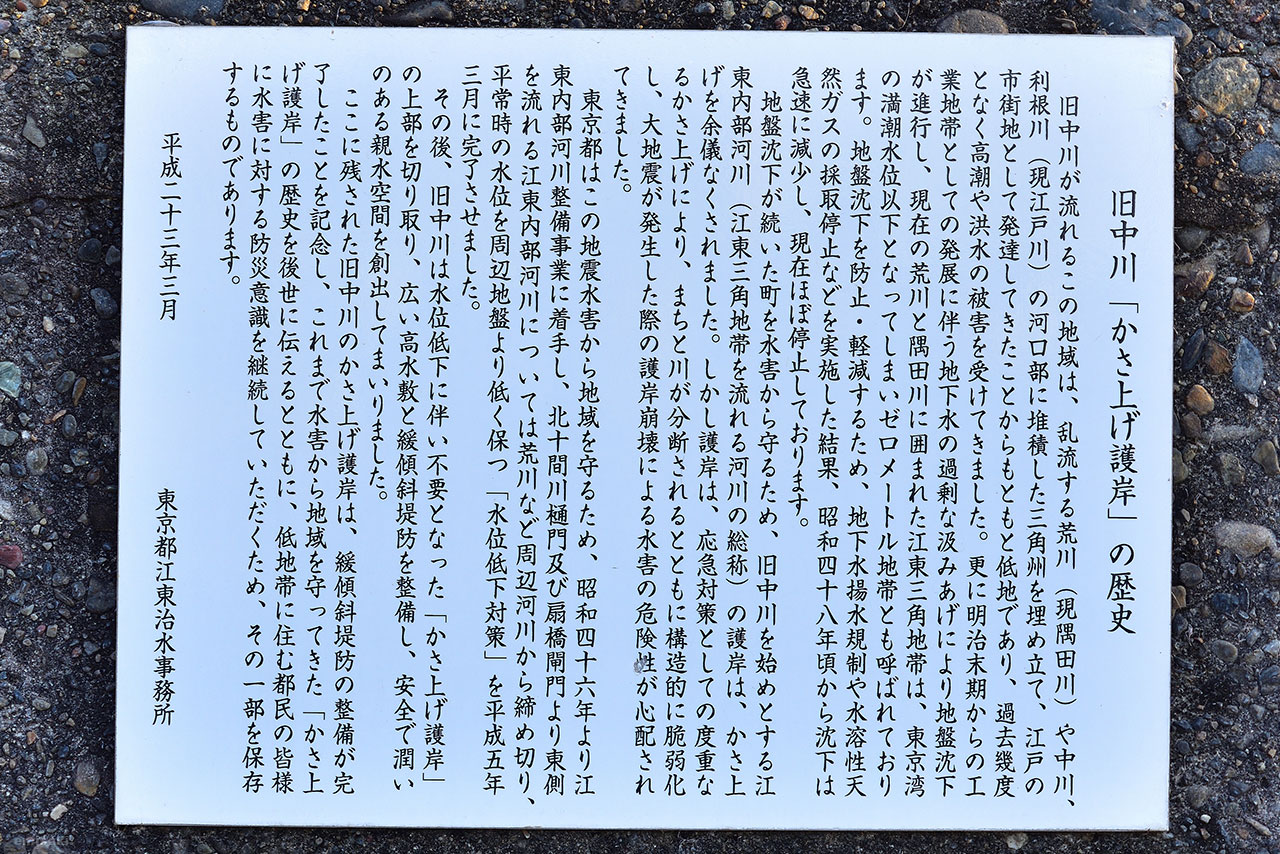 旧中川「かさ上げ護岸」の歴史
旧中川が流れるこの地域は、乱流する荒川（現隅田川）や中川、
利根川（現江戸川）の河口部に堆積した三角州を埋め立て、江戸の
市街地として発達してきたことからもともと低地であり、過去幾度
となく高潮や洪水の被害を受けてきました。更に明治末期からの工
業地帯としての発展に伴う地下水の過剰な汲みあげにより地盤沈下
が進行し、現在の荒川と隅田川に囲まれた江東三角地帯は、東京湾
の満潮水位以下となってしまいゼロメートル地帯とも呼ばれており
ます。地盤沈下を防止・軽減するため、地下水揚水規制や水溶性天
然ガスの採取停止などを実施した結果、昭和四十八年頃から沈下は
急速に減少し、現在ほぼ停止しております。
地盤沈下が続いた町を水害から守るため、旧中川を始めとする江
東内部河川（江東三角地帯を流れる河川の総称）の護岸は、かさ上
げを余儀なくされました。しかし護岸は、応急対策としての度重な
るかさ上げにより、まちと川が分断されるとともに構造的に脆弱化
し、大地震が発生した際の護岸崩壊による水害の危険性が心配され
てきました。
東京都はこの地震水害から地域を守るため、昭和四十六年より江
東内部河川整備事業に着手し、北十間川樋門及び扇橋閘門より東側
を流れる江東内部河川については荒川など周辺河川から締め切り、
平常時の水位を周辺地盤より低く保つ「水位低下対策」を平成五年
三月に完了させました。
その後、旧中川は水位低下に伴い不要となった「かさ上げ護岸」
の上部を切り取り、広い高水敷と緩傾斜堤防を整備し、安全で潤い
のある親水空間を創出してまいりました。
ここに残された旧中川のかさ上げ護岸は、緩傾斜堤防の整備が完
了したことを記念し、これまで水害から地域を守ってきた「かさ上
げ護岸」の歴史を後世に伝えるとともに、低地帯に住む都民の皆様
に水害に対する防災意識を継続していただくため、その一部を保存
するものであります。
平成二十三年三月
東京都江東治水事務所